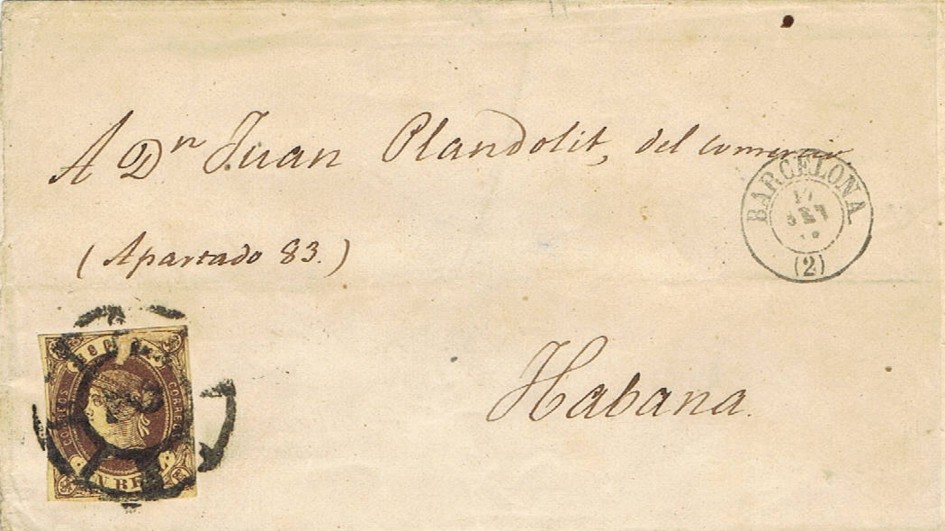 A Dn Juan Plandolit, del comercio
(Apartado 83.)
Habana
BARCELONA
17
SET
(2)
CORREOS
CORREOS
UN RL